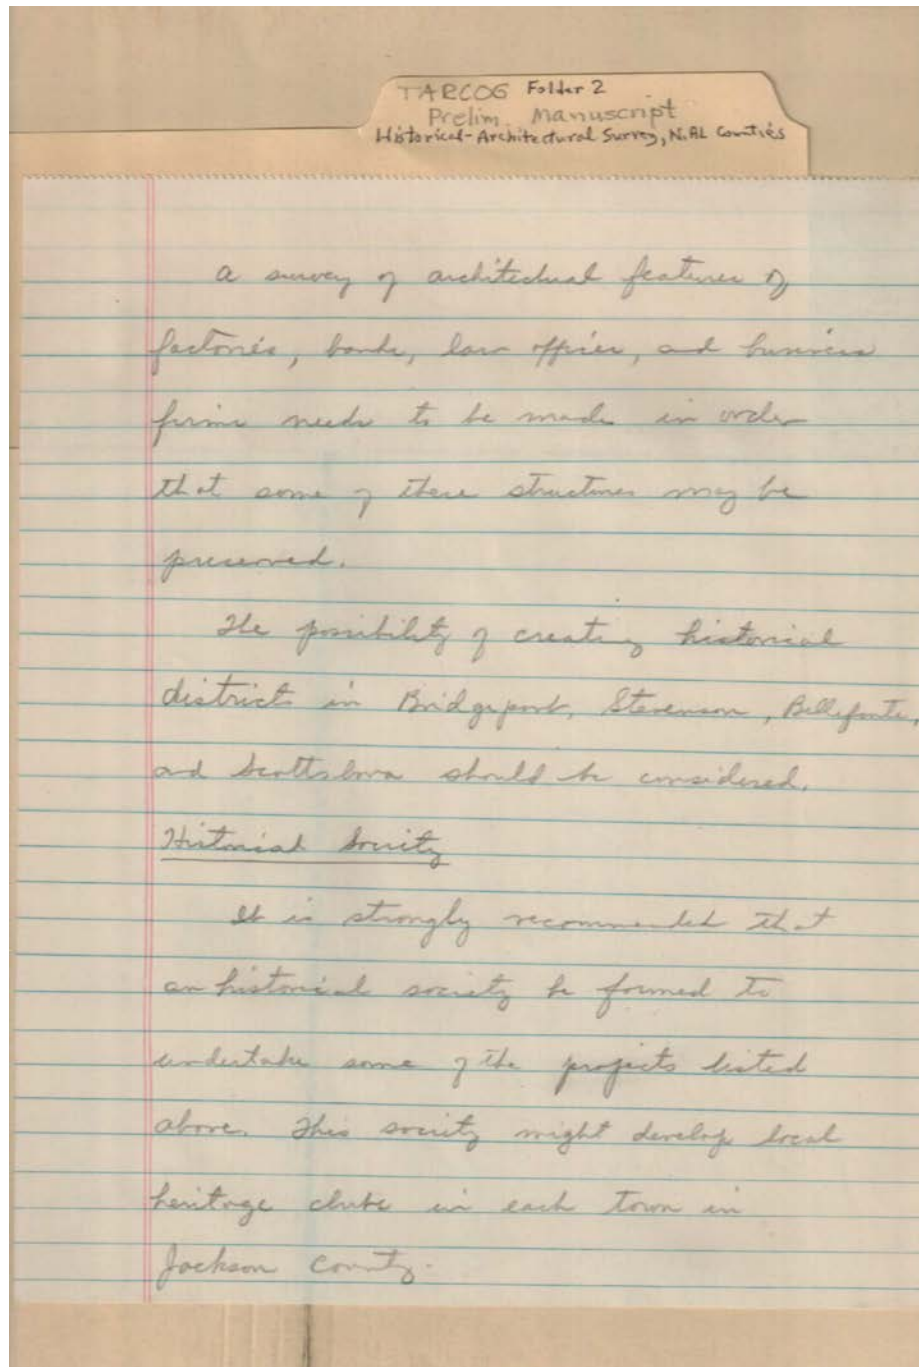 TARCOG Folder 2
Prelim. Manuscript
Historical-Architectural Survey, N. AL Counties
A survey of architectual features of
factories, banks, law offices, and business
firms needs to be made in order
that some of these structures may be
preserved.
The possibility of creating historical
districts in Bridgeport, Stevenson, Bellefonte,
and Scottsboro should be considered.
Historical Society
It is strongly recommended that
an historical society be formed to
undertake some of the projects listed
above. This society might develop local
heritage clubs in each town in
Jackson County.